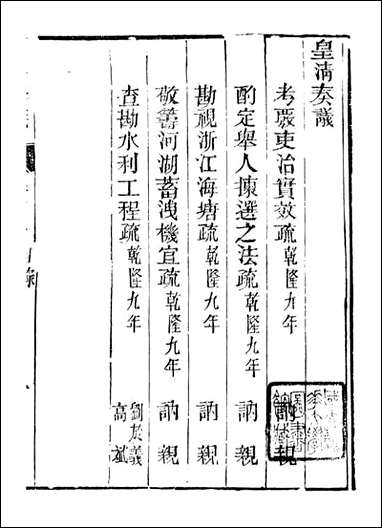 皇清奏議
考覈吏治實效疏乾隆九年 訥親
酌定舉人揀選之法疏乾隆九年 訥親
勘視浙江海塘疏乾隆九年 訥親
敬籌河湖蓄洩機宜疏乾隆九年 訥親
查勘水利工程疏乾隆九年 劉於義 高斌
目錄